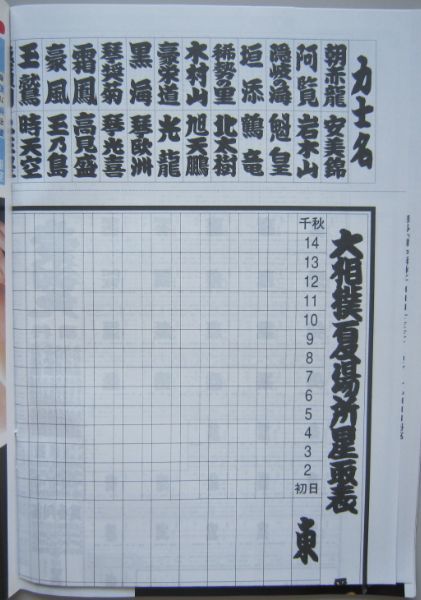 力士名
朝赤龍 安美錦
阿覧 岩木山
隠岐海 魁皇
垣添 鶴竜
稀勢里 北太樹
木村山 旭天鵬
豪栄道 光龍
黒海 琴欧洲
琴奨菊 琴光喜
霜鳳 高見盛
豪風 玉乃島
玉鷲 時天空
大相撲夏場所星取表
千秋
14
13
12
11
10
9
8
7
6
5
4
3
2
初日
東